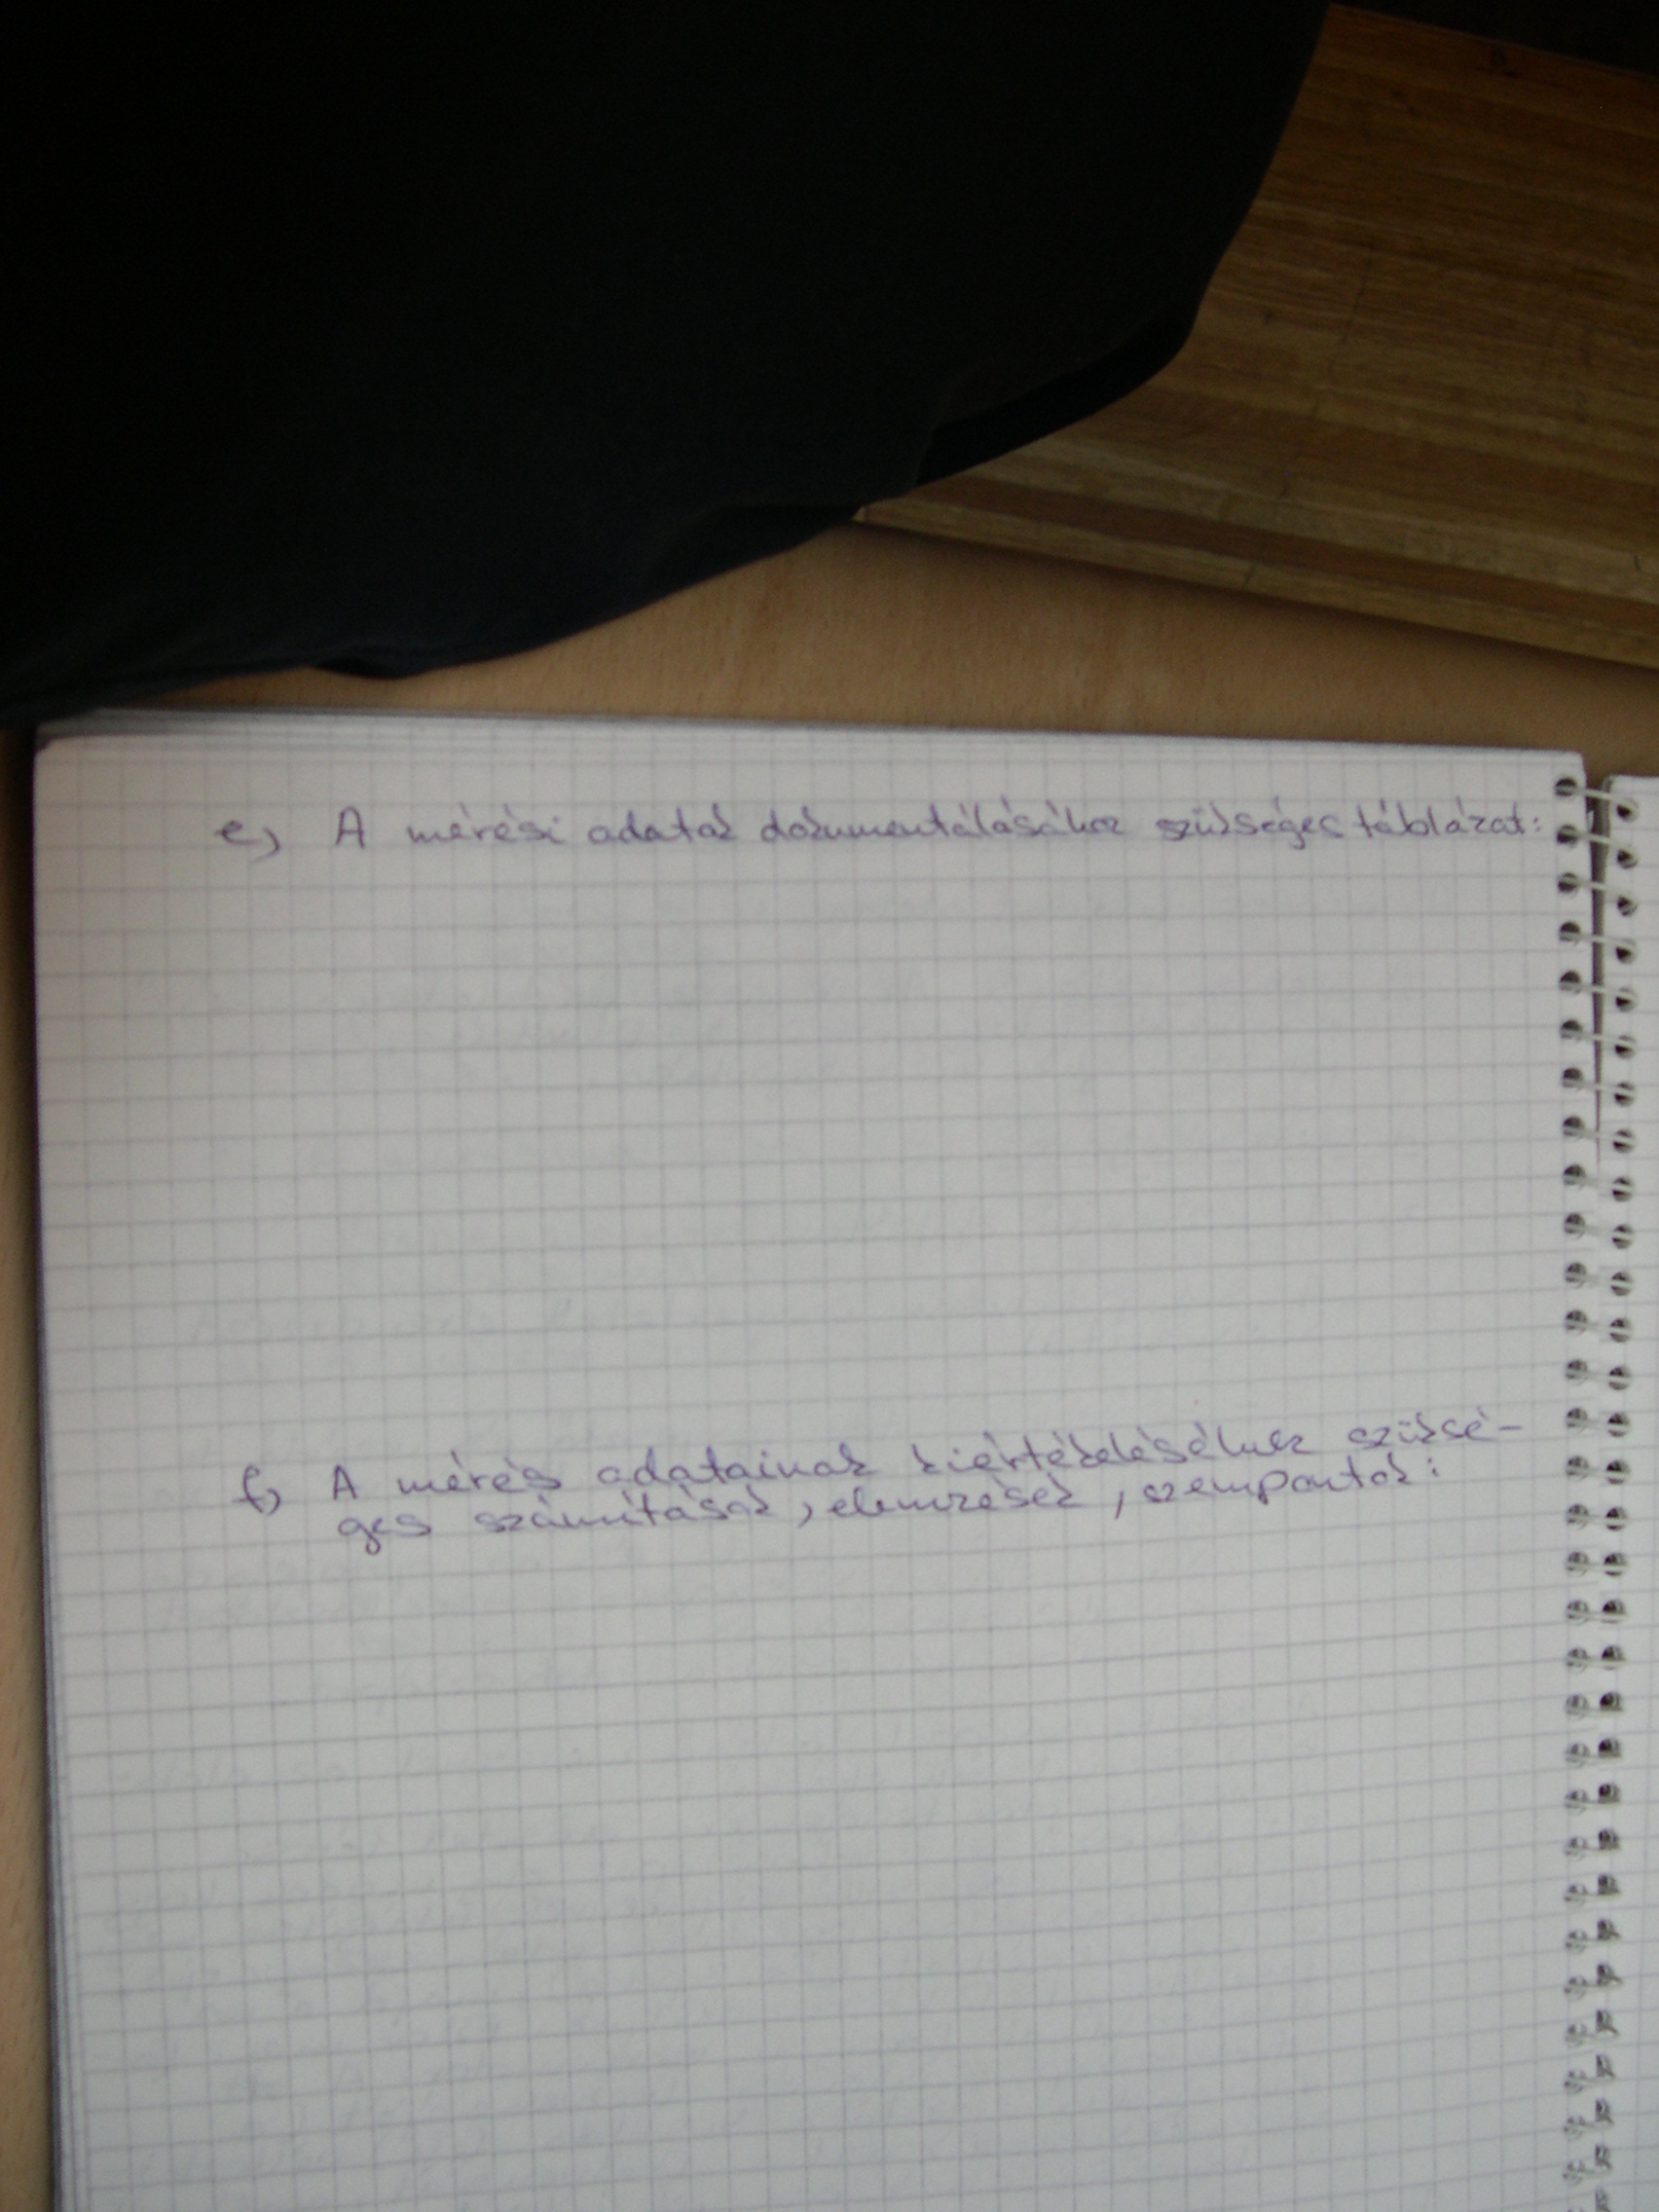 e, A mérési adatok dokumentálásához szükséges táblázat:
f, A mérés adatainak kiértékeléséhez szüksé-
ges számítások, elemzések, szempontok: